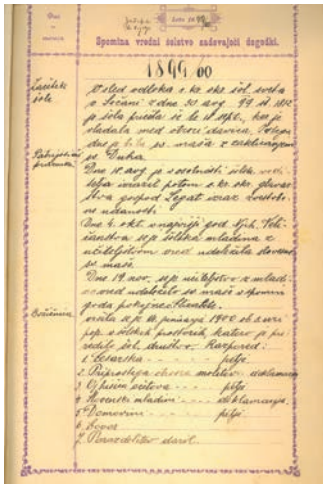 Dan in mesec
Leto 1899/
Spomina vredni šolstvo zadevajoči dogodki.
1899/00
Začetek šole
Vsled odloka c. kr. okr. šol. sveta
v Sežani z dne 30. avg. 99 št.
je šola pričela še le 18. sept., ker je
vladala med otroci davica. Istega
dne je bila sv. maša z zaklicanjem
sv. Duha.
Patrijotična
Dne 18. avg. je v osebnosti šolsk. vodi-
telja izrazil potom c. kr. okr. glavar-
stva gospod Legat izraz zvesto-
be udanosti.
Dne 4. okt. v najvišji god Njih. Veli-
čanstva se je šolska mladina z
učiteljstvom vred udeležila slovesne
sv. maše.
Dne 19. nov. se je učiteljstvo z mladi-
no vred udeležilo sv. maše v spomin
goda pokojne Elizabete.
Božičnica
vršila se je 6. januarja 1900 ob 3. uri
pop. v šolskih prostorih, katero je pri-
redilo šol. društvo. Razpored:
1. Cesarska - - - petje
2. Priprostega otroka molitev - deklamacija
3. Oj hišica očetova - petje
4. Slovenski mladini - - - deklamacija.
5. Domovini - petje
6. Govor
7. Porazdelitev daril.